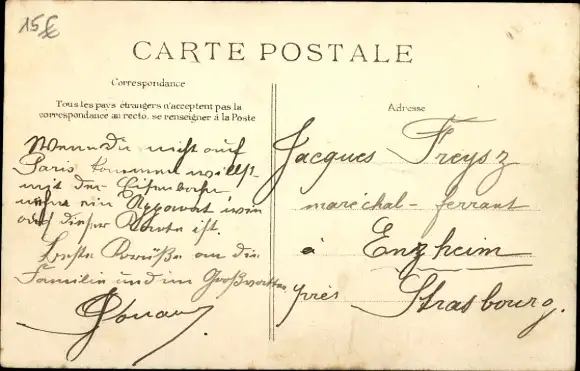 15€
CARTE POSTALE
Correspondance
Tous les pays étrangers n'acceptent pas la
correspondance au recto, se renseigner à la Poste
Wenn Du nicht auf
Paris kommen willst
mit der Eisenbahn
nehme ein Apparat wie
auf dieser Route ist.
Beste Grüße an die
Familie und im Großvatter
Adresse
Jacques Freysz
maréchal-ferrant
à Enzheim
près Strasbourg.